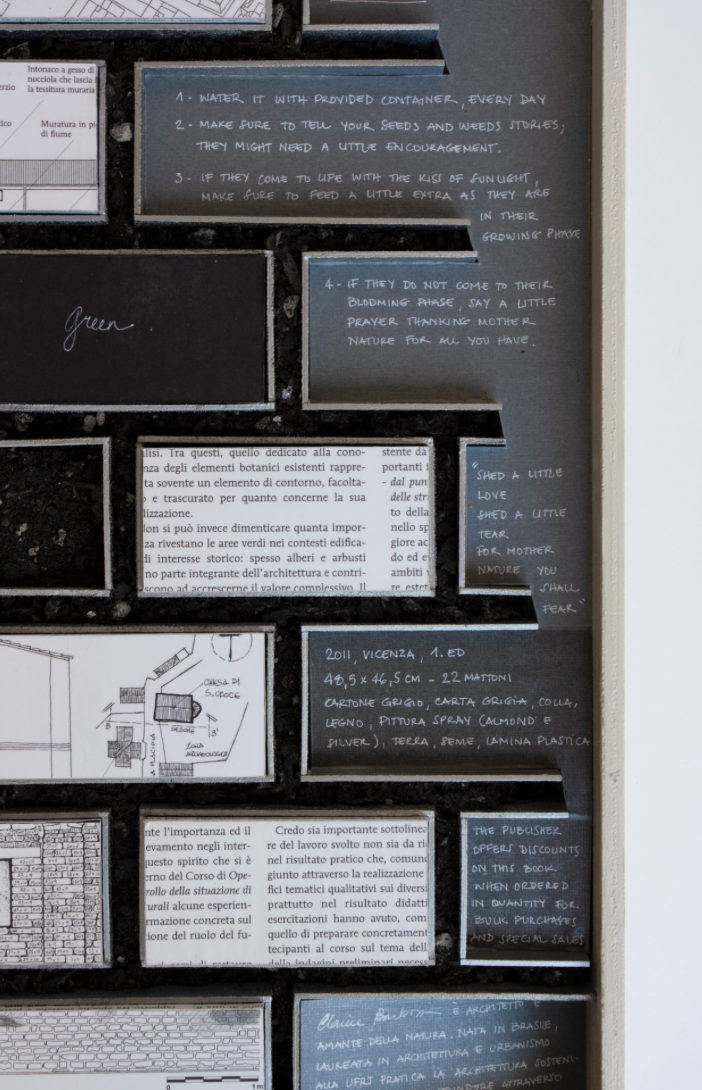 Intonaco a gesso di
nocciola che lascia
la tessitura muraria
erzio
ico
Muratura in pi
di fiume
1 - WATER IT WITH PROVIDED CONTAINER, EVERY DAY
2 - MAKE SURE TO TELL YOUR SEEDS AND WEEDS STORIES;
THEY MIGHT NEED A LITTLE ENCOURAGEMENT.
3 - IF THEY COME TO LIFE WITH THE KISS OF SUNLIGHT,
MAKE SURE TO FEED A LITTLE EXTRA AS THEY ARE
IN THEIR
GROWING PHASE
green.
4 - IF THEY DO NOT COME TO THEIR
BLOOMING PHASE, SAY A LITTLE
PRAYER THANKING MOTHER
NATURE FOR ALL YOU HAVE.
lisi. Tra questi, quello dedicato alla cono-
nza degli elementi botanici esistenti rappre-
ta sovente un elemento di contorno, facolta-
e trascurato per quanto concerne la sua
lizzazione.
on si può invece dimenticare quanta impor-
za rivestano le aree verdi nei contesti edifica-
di interesse storico: spesso alberi e arbusti
no parte integrante dell'architettura e contri-
scono ad accrescerne il valore complessivo. Il
stente da
portanti
- dal pun
delle str
to della
nello sp
giore ac
do ed e
ambiti
re estet
"SHED A LITTLE
LOVE
SHED A LITTLE
TEAR
FOR MOTHER
NATURE YOU
SHALL
FEAR"
CHIESA DI
S. CROCE
B
B'
SEZIONE
ZONA
ARCHEOLOGICA
2011, VICENZA, 1. ED
48,5 x 46,5 CM - 22 MATTONI
CARTONE GRIGIO, CARTA GRIGIA, COLLA,
LEGNO, PITTURA SPRAY (ALMOND E
SILVER), TERRA, SEME, LAMINA PLASTICA
nte l'importanza ed il
evamento negli inter-
questo spirito che si è
erno del Corso di Ope-
rollo della situazione di
urali alcune esperien-
rmazione concreta sul
ione del ruolo del fu-
Credo sia importante sottoline
re del lavoro svolto non sia da ri
nel risultato pratico che, comun
giunto attraverso la realizzazione
fici tematici qualitativi sui diversi
prattutto nel risultato didatti
esercitazioni hanno avuto, com
quello di preparare concretament
tecipanti al corso sul tema dell
della indagini preliminari necess
THE PUBLISHER
OFFERS DISCOUNTS
ON THIS BOOK
WHEN ORDERED
IN QUANTITY FOR
BULK PURCHASES
AND SPECIAL SALES
1 m
È ARCHITETTO E
AMANTE DELLA NATURA. NATA IN BRASILE,
LAUREATA IN ARCHITETTURA E URBANISMO
ALLA UFRJ PRATICA LA ARCHITETTURA SOSTENI-
ATTRAVERSO